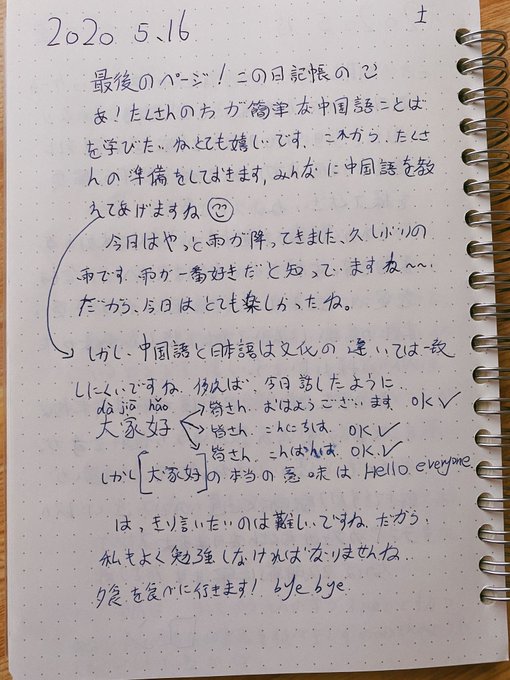 2020 5.16 土
最後のページ!この日記帳の
あ!たくさんの方が簡単な中国語ことば
を学びたいね、とても嬉しいです、これから、たくさ
んの準備をしておきます、みんなに中国語を教
えてあげますね
今日はやっと雨が降ってきました、久しぶりの
雨です、雨が一番好きだと知っていますね~~、
だから、今日はとても楽しかったね。
しかし、中国語と日本語は文化の違いでは一致
しにくいですね、例えば、今日話したように
dà jiā hǎo
大家好
皆さん、おはようございます OK✓
皆さん、こんにちは、OK✓
皆さん、こんばんは、OK✓
しかし[大家好]の本当の意味は Hello everyone.
はっきり言いたいのは難しいですね、だから、
私もよく勉強しなければなりませんね
夕食を食べに行きます! bye bye